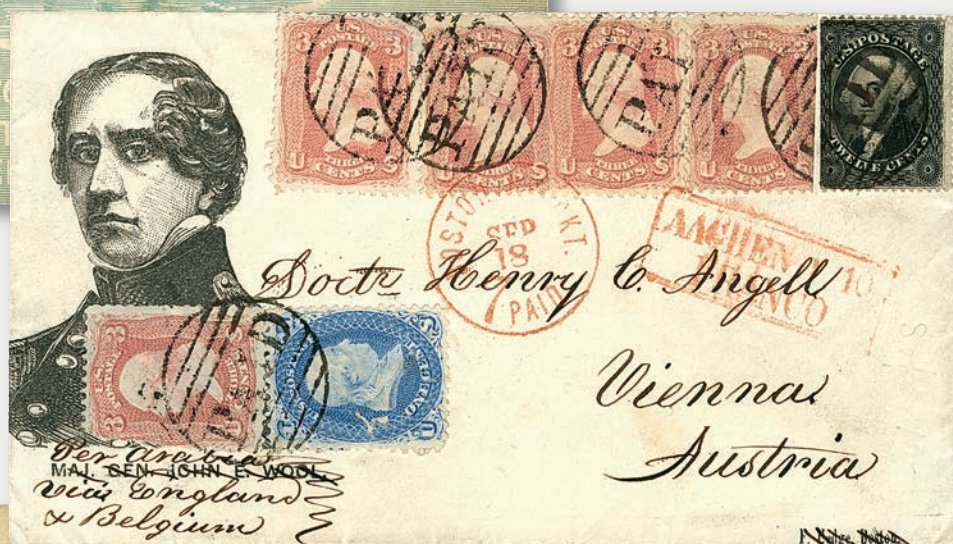 U.S. POSTAGE
TWELVE CENTS
U.S. POSTAGE
3 3
U THREE CENTS S
PAID
BOSTON BR. PKT.
SEP
18
PAID
AACHEN 10
FRANCO
Doctr Henry C. Angell
Vienna
Austria
PAID
Per Arabia
MAJ. GEN. JOHN E. WOOL
via England
& Belgium